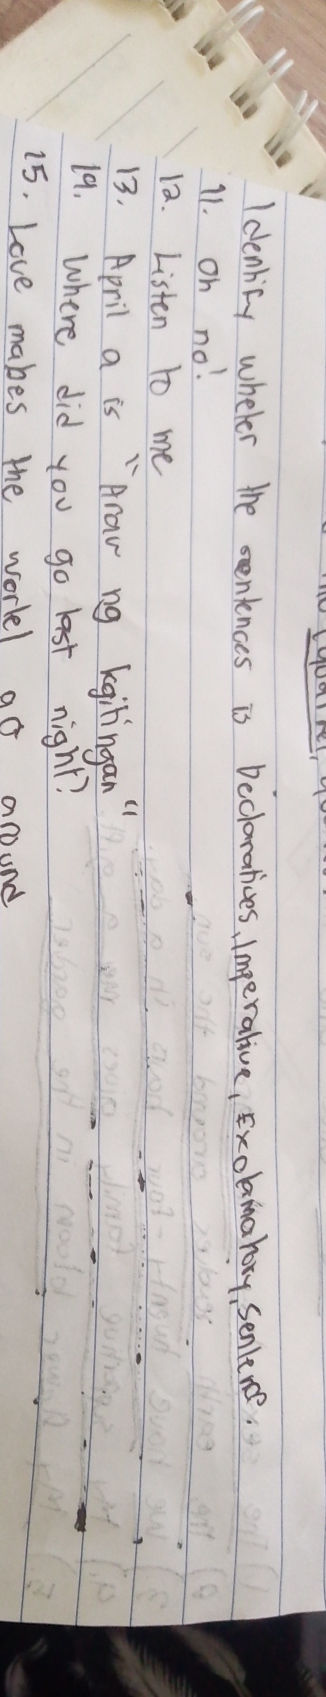 Identify wheter the sentences is Declaratives, Imperative, Exclamatory, Sentence.
11. Oh no!
12. Listen to me
13. April 9 is "Araw ng kgitingan"
14. Where did you go last night?
15. Love makes the world go around